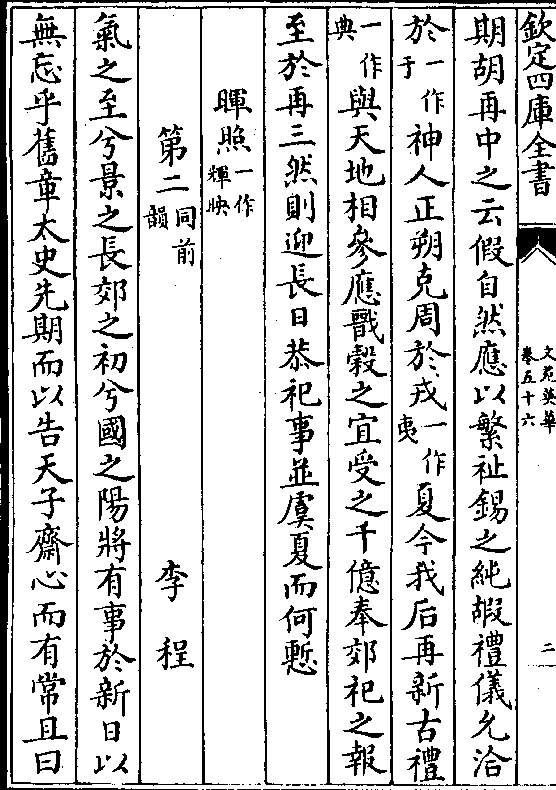 欽定四庫全書
文苑英華
卷五十六
二
期胡再中之云假自然應以繁祉錫之純嘏禮儀允洽
於一作于神人正朔克周於戎一作夷夏今我后再新古禮
一作典與天地相參應戩穀之宜受之千億奉郊祀之報
至於再三然則迎長日恭祀事並虞夏而何慙
暉照一作輝映
第二同前韻 李程
氣之至兮景之長郊之初兮國之陽將有事於新日以
無忘乎舊章太史先期而以告天子齋心而有常且曰